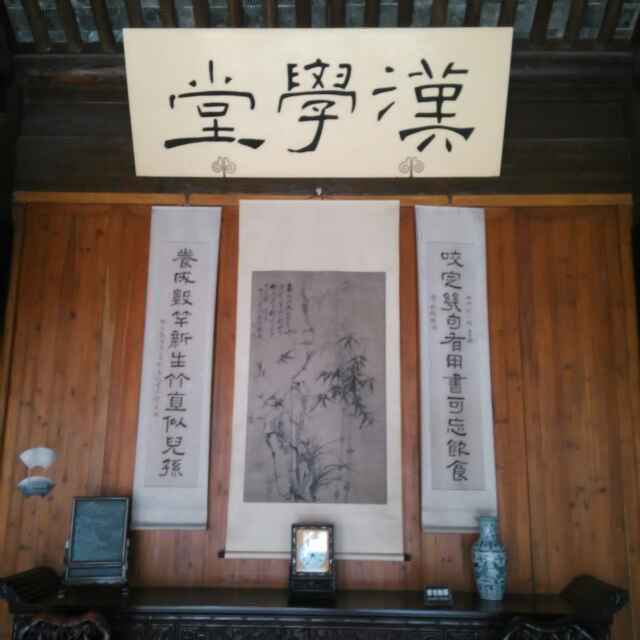 漢學堂
咬定幾句有用書可忘飲食
養成數竿新生竹直似兒孫